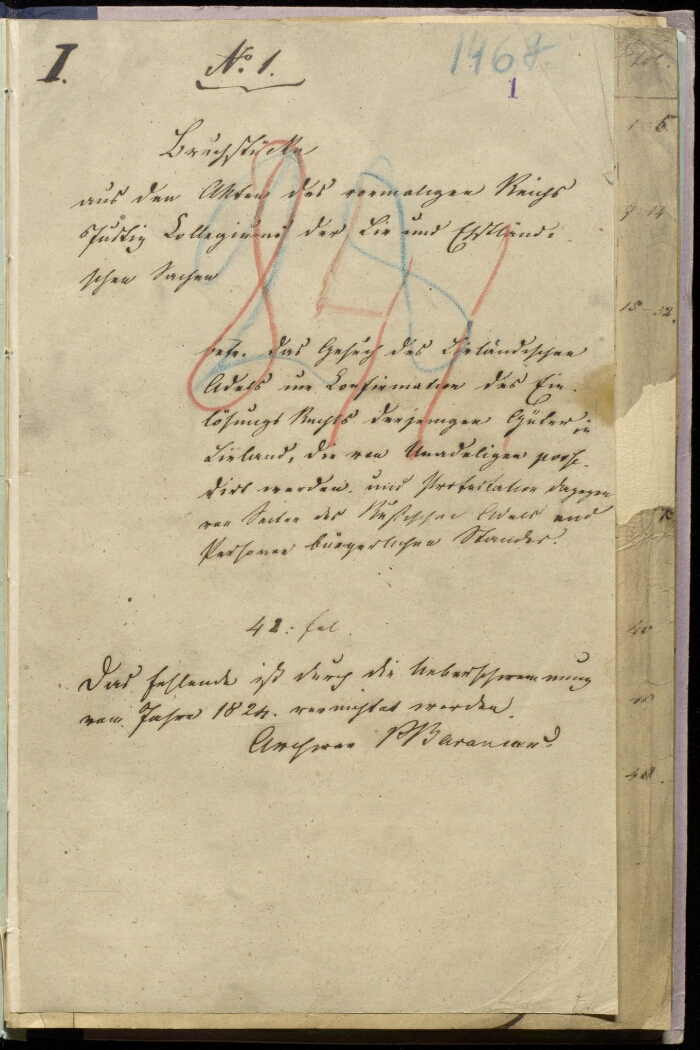 I.
No 1.
1467.
1
Bruchstücke
aus den Akten des vormaligen Reichs
Justiz Collegiums der Liv und Ehstländi-
schen Sachen
betr. das Gesuch des Livländischen
Adels um Confirmation des Ein-
lösungs Rechts derjenigen Güter in
Livland, die von Unadeligen posse-
dirt werden. und Protestation dagegen
von Seiten des Adels und
Personen bürgerlichen Standes.
42. fol.
Das fehlende ist durch die Ueberschwemmung
vom Jahre 1824. vernichtet worden.
fol.
1-6.
7-14
15-32.
40